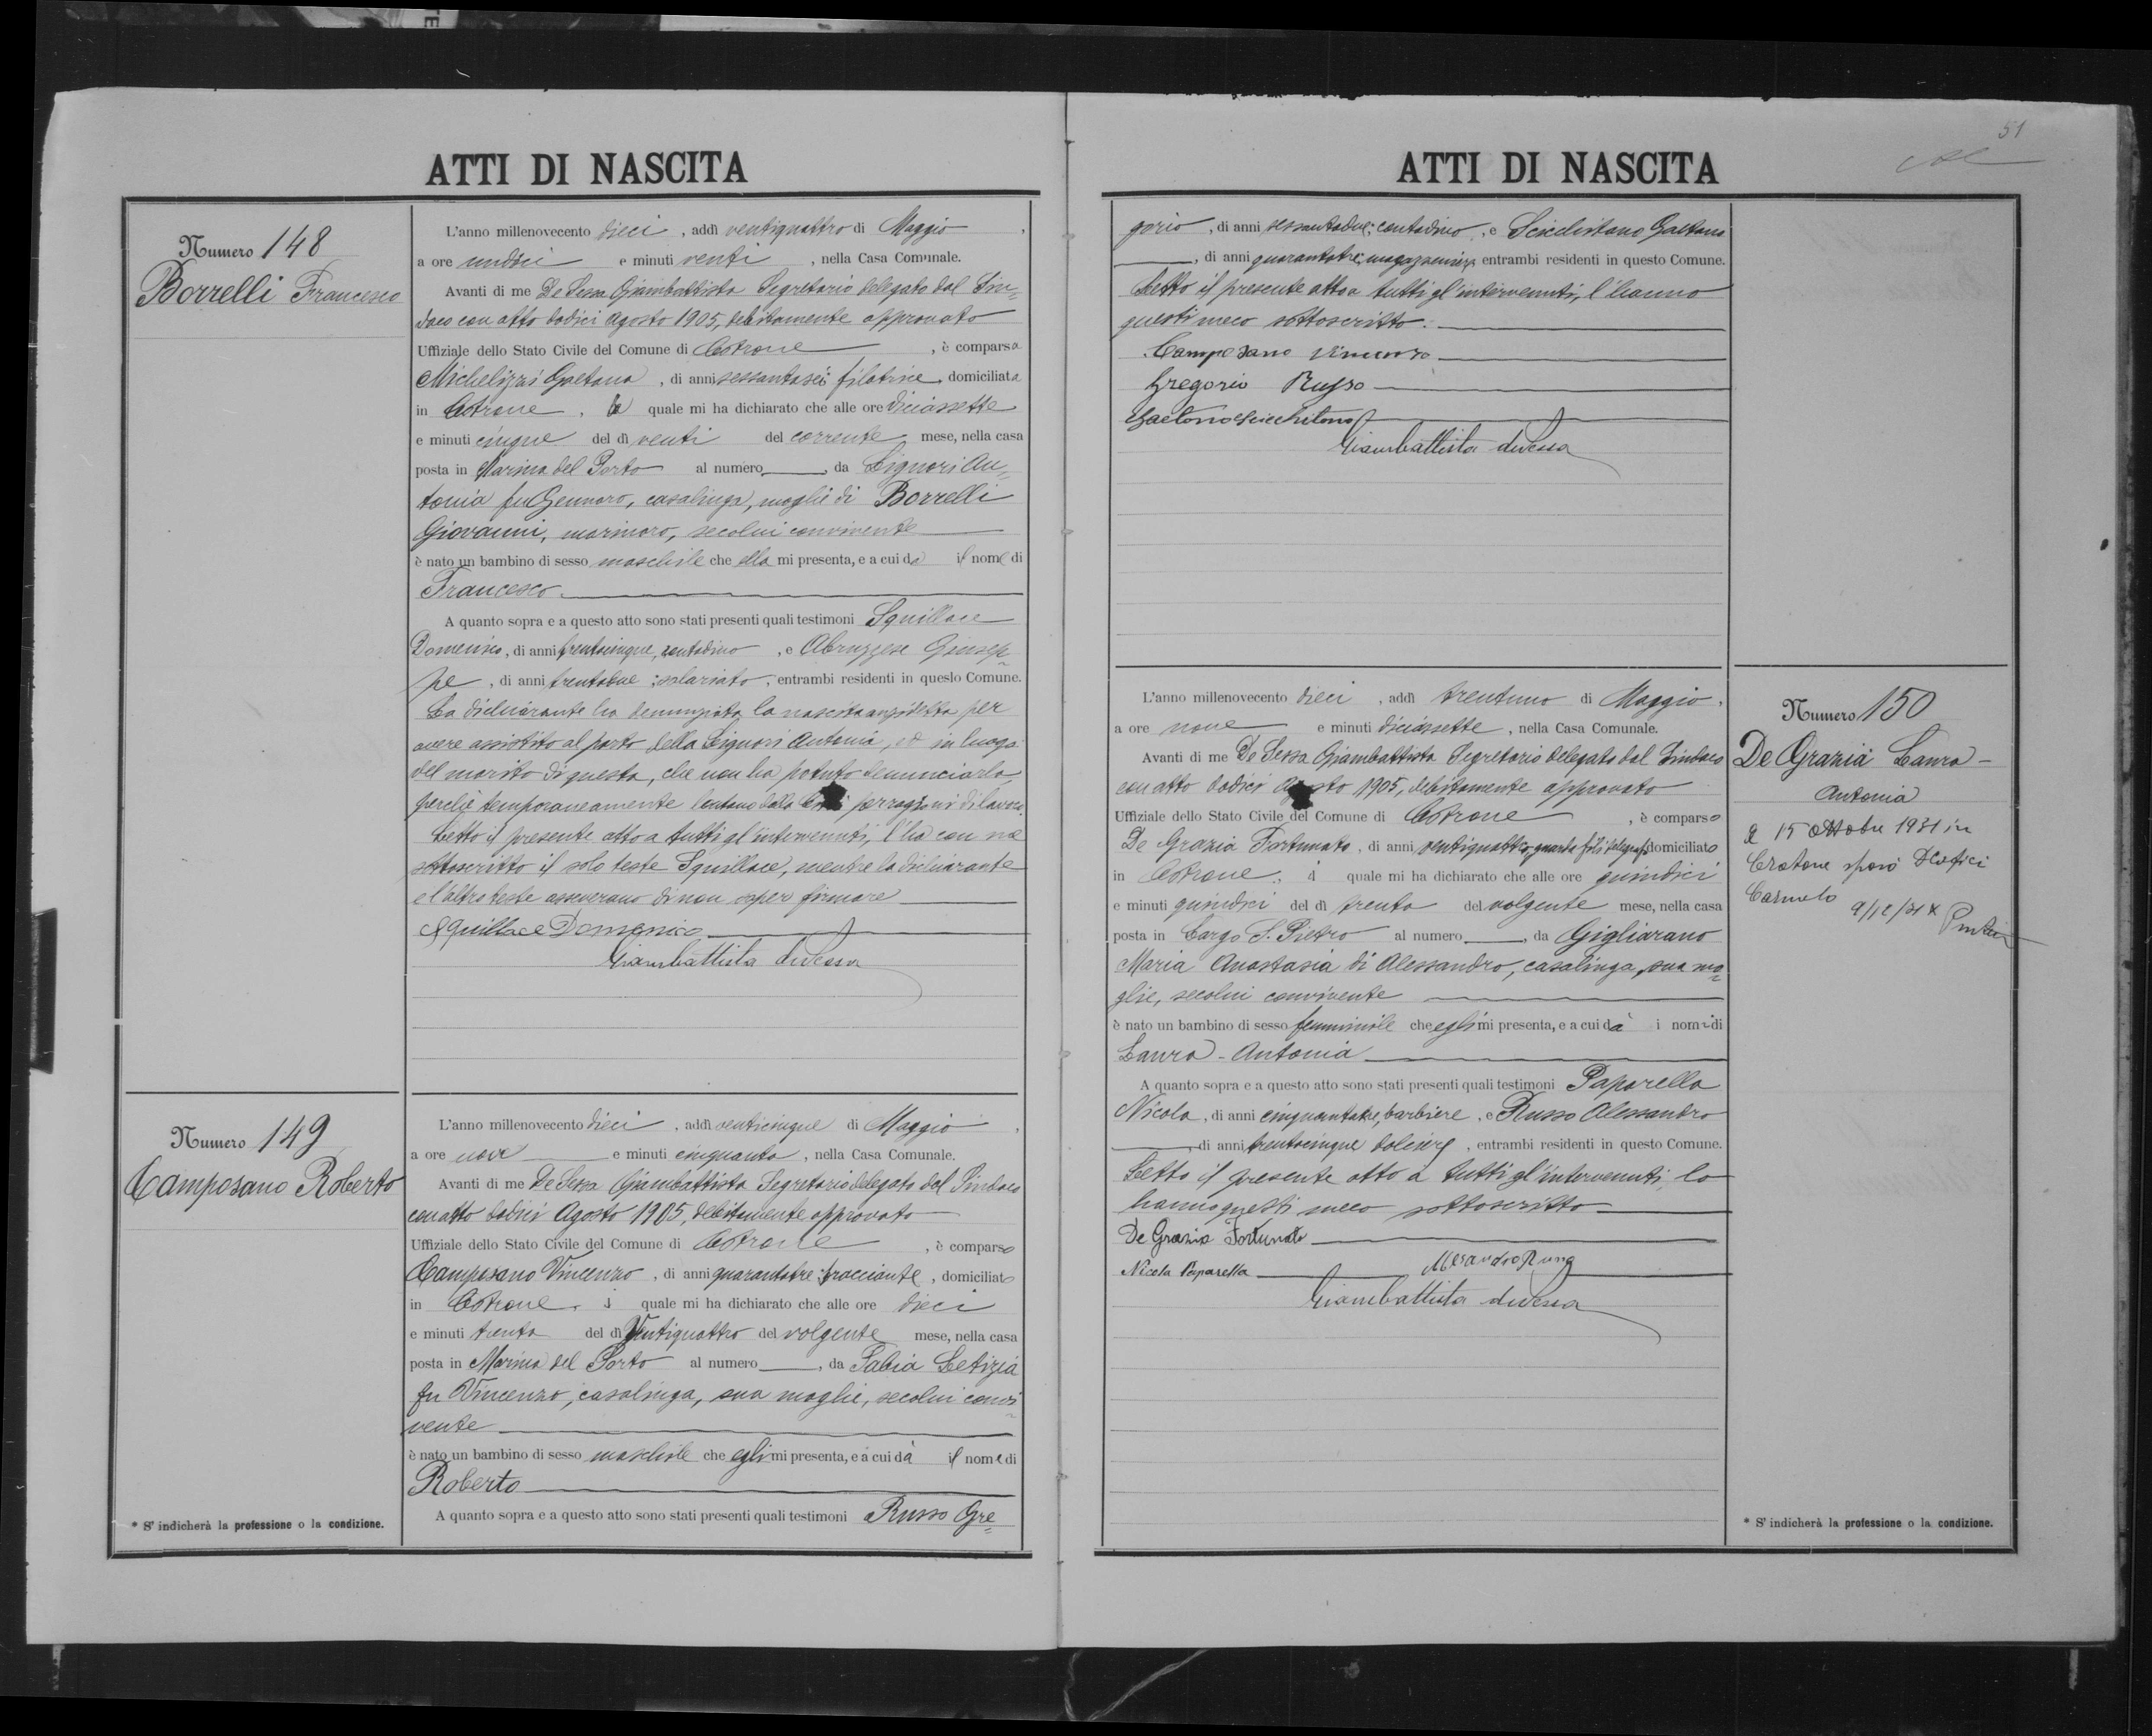 ATTI DI NASCITA
Numero 148
Borrelli Francesco
L'anno millenovecento dieci, addì ventiquattro di Maggio,
a ore undici e minuti venti, nella Casa Comunale.
Avanti di me De Sessa Giambattista Segretario delegato dal Sin=
daco con atto dodici Agosto 1905, debitamente approvato
Uffiziale dello Stato Civile del Comune di Cotrone, è comparsa
Michelizzi Gaetana, di anni sessantasei filatrice, domiciliata
in Cotrone, la quale mi ha dichiarato che alle ore diciassette
e minuti cinque del dì venti del corrente mese, nella casa
posta in Marina del Porto al numero ——, da Liguori An=
tonia fu Gennaro, casalinga, moglie di Borrelli
Giovanni, marinaro, secolui convivente
è nato un bambino di sesso maschile che ella mi presenta, e a cui dà il nome di
Francesco.
A quanto sopra e a questo atto sono stati presenti quali testimoni Squillace
Domenico, di anni trentacinque, contadino, e Abruzzese Giusep=
pe, di anni trentadue; salariato, entrambi residenti in questo Comune.
La dichiarante ha denunziata la nascita anzidetta per
avere assistito al parto della Liguori Antonia, ed in luogo
del marito di questa, che non ha potuto denunciarla,
perchè temporaneamente lontano dalla per ragioni di lavoro.
Letto il presente atto a tutti gl'intervenuti, l'ha con me
sottoscritto il solo teste Squillace, mentre la dichiarante
e l'altro teste asseverano di non saper firmare
Squillace Domenico
Giambattista de Sessa
Numero 149
Camposano Roberto
L'anno millenovecento dieci, addì venticinque di Maggio,
a ore nove e minuti cinquanta, nella Casa Comunale.
Avanti di me De Sessa Giambattista Segretario delegato dal Sindaco
con atto dodici Agosto 1905, debitamente approvato
Uffiziale dello Stato Civile del Comune di Cotrone, è comparso
Camposano Vincenzo, di anni quarantatre bracciante, domiciliato
in Cotrone, il quale mi ha dichiarato che alle ore dieci
e minuti trenta del dì Ventiquattro del volgente mese, nella casa
posta in Marina del Porto al numero ——, da Pabia Letizia
fu Vincenzo, casalinga, sua moglie, secolui convi=
vente
è nato un bambino di sesso maschile che egli mi presenta, e a cui dà il nome di
Roberto
A quanto sopra e a questo atto sono stati presenti quali testimoni Russo Gre=
* S' indicherà la professione o la condizione.
51
ATTI DI NASCITA
gorio, di anni sessantadue; contadino, e Scicchitano Gaetano
——, di anni quarantatre; magazziniere, entrambi residenti in questo Comune.
Letto il presente atto a tutti gl'intervenuti, l'hanno
questi meco sottoscritto.
Camposano Vincenzo
Gregorio Russo
Gaetano Scicchitano
Giambattista de Sessa
Numero 150
De Grazia Laura -
Antonia
Il 15 Ottobre 1931 in
Crotone sposò
Carmelo
L'anno millenovecento dieci, addì trentuno di Maggio,
a ore nove e minuti diciassette, nella Casa Comunale.
Avanti di me De Sessa Giambattista Segretario delegato dal Sindaco
con atto dodici Agosto 1905, debitamente approvato
Uffiziale dello Stato Civile del Comune di Cotrone, è comparso
De Grazia Fortunato, di anni ventiquattro, guarda fili telegrafi domiciliato
in Cotrone, il quale mi ha dichiarato che alle ore quindici
e minuti quindici del dì trenta del volgente mese, nella casa
posta in Largo S. Pietro al numero ——, da Gigliarano
Maria Anastasia di Alessandro, casalinga, sua mo=
glie, secolui convivente
è nato un bambino di sesso femminile che egli mi presenta, e a cui dà i nomi di
Laura - Antonia
A quanto sopra e a questo atto sono stati presenti quali testimoni Paparella
Nicola, di anni cinquantatre, barbiere, e Russo Alessandro
——, di anni trentacinque dolciere, entrambi residenti in questo Comune.
Letto il presente atto a tutti gl'intervenuti lo
hanno questi meco sottoscritto
De Grazia Fortunato
Nicola Paparella
Giambattista de Sessa
* S' indicherà la professione o la condizione.